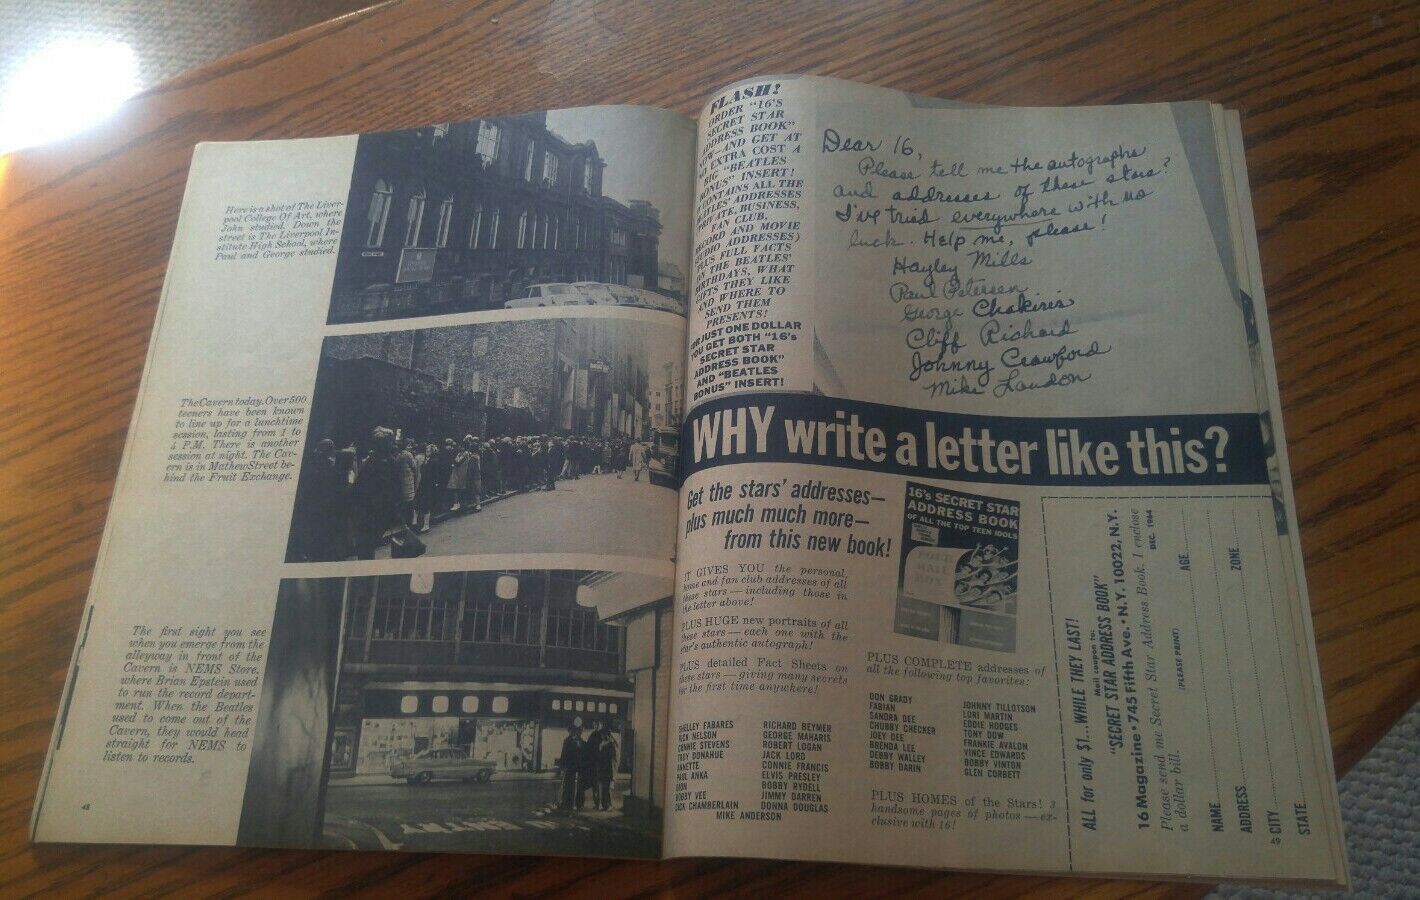 Here is a shot of The Liver-
pool College Of Art, where
John studied. Down the
street is The Liverpool In-
stitute High School, where
Paul and George studied.
The Cavern today. Over 500
teeners have been known
to line up for a lunchtime
session, lasting from 1 to
4 P.M. There is another
session at night. The Cav-
ern is in Mathew Street be-
hind the Fruit Exchange.
The first sight you see
when you emerge from the
alleyway in front of the
Cavern is NEMS Store,
where Brian Epstein used
to run the record depart-
ment. When the Beatles
used to come out of the
Cavern, they would head
straight for NEMS to
listen to records.
48
FLASH!
ORDER "16'S
SECRET STAR
ADDRESS BOOK"
NOW—AND GET AT
NO EXTRA COST A
BIG "BEATLES
BONUS" INSERT!
CONTAINS ALL THE
BEATLES' ADDRESSES
PRIVATE, BUSINESS,
FAN CLUB,
RECORD AND MOVIE
STUDIO ADDRESSES)
PLUS FULL FACTS
ON THE BEATLES'
BIRTHDAYS, WHAT
GIFTS THEY LIKE
AND WHERE TO
SEND THEM
PRESENTS!
FOR JUST ONE DOLLAR
YOU GET BOTH "16's
SECRET STAR
ADDRESS BOOK"
AND "BEATLES
BONUS" INSERT!
Dear 16,
Please tell me the autographs
and addresses of these stars?
I've tried everywhere with no
luck. Help me, please!
Hayley Mills
Paul Petersen
George Chakiris
Cliff Richard
Johnny Crawford
Mike Landon
WHY write a letter like this?
Get the stars' addresses—
plus much much more—
from this new book!
IT GIVES YOU the personal,
home and fan club addresses of all
these stars — including those in
the letter above!
PLUS HUGE new portraits of all
these stars — each one with the
star's authentic autograph!
PLUS detailed Fact Sheets on
these stars — giving many secrets
for the first time anywhere!
SHELLEY FABARES
RICK NELSON
CONNIE STEVENS
TROY DONAHUE
ANNETTE
PAUL ANKA
DION
BOBBY VEE
DICK CHAMBERLAIN
RICHARD BEYMER
GEORGE MAHARIS
ROBERT LOGAN
JACK LORD
CONNIE FRANCIS
ELVIS PRESLEY
BOBBY RYDELL
JIMMY DARREN
DONNA DOUGLAS
MIKE ANDERSON
16's SECRET STAR
ADDRESS BOOK
OF ALL THE TOP TEEN IDOLS
PLUS COMPLETE addresses of
all the following top favorites:
DON GRADY
FABIAN
SANDRA DEE
CHUBBY CHECKER
JOEY DEE
BRENDA LEE
DEBBY WALLEY
BOBBY DARIN
JOHNNY TILLOTSON
LORI MARTIN
EDDIE HODGES
TONY DOW
FRANKIE AVALON
VINCE EDWARDS
BOBBY VINTON
GLEN CORBETT
PLUS HOMES of the Stars! 3
handsome pages of photos — ex-
clusive with 16!
ALL for only $1....WHILE THEY LAST!
Mail coupon to:
"SECRET STAR ADDRESS BOOK"
16 Magazine • 745 Fifth Ave. • N.Y. 10022, N.Y.
DEC. 1964
Please send me Secret Star Address Book. I enclose
a dollar bill.
(PLEASE PRINT)
NAME AGE
ADDRESS
CITY ZONE
STATE
49